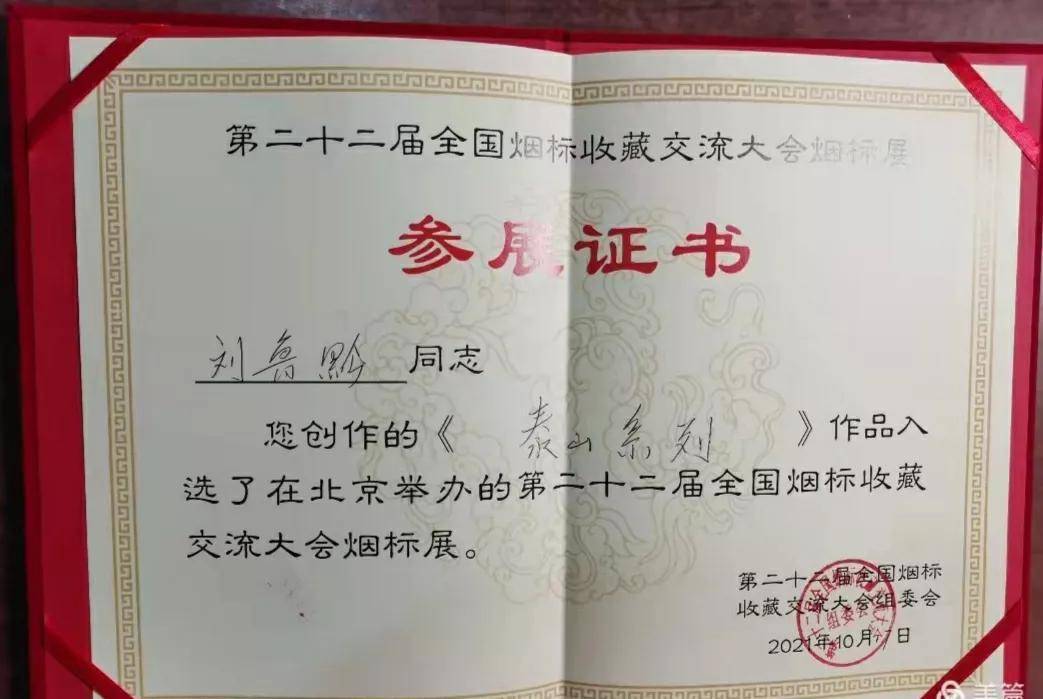 第二十二届全国烟标收藏交流大会烟标展
参展证书
刘鲁黔 同志
您创作的《 泰山系列 》作品入
选了在北京举办的第二十二届全国烟标收藏
交流大会烟标展。
第二十二届全国烟标
收藏交流大会组委会
2021年10月17日
组委会
美篇